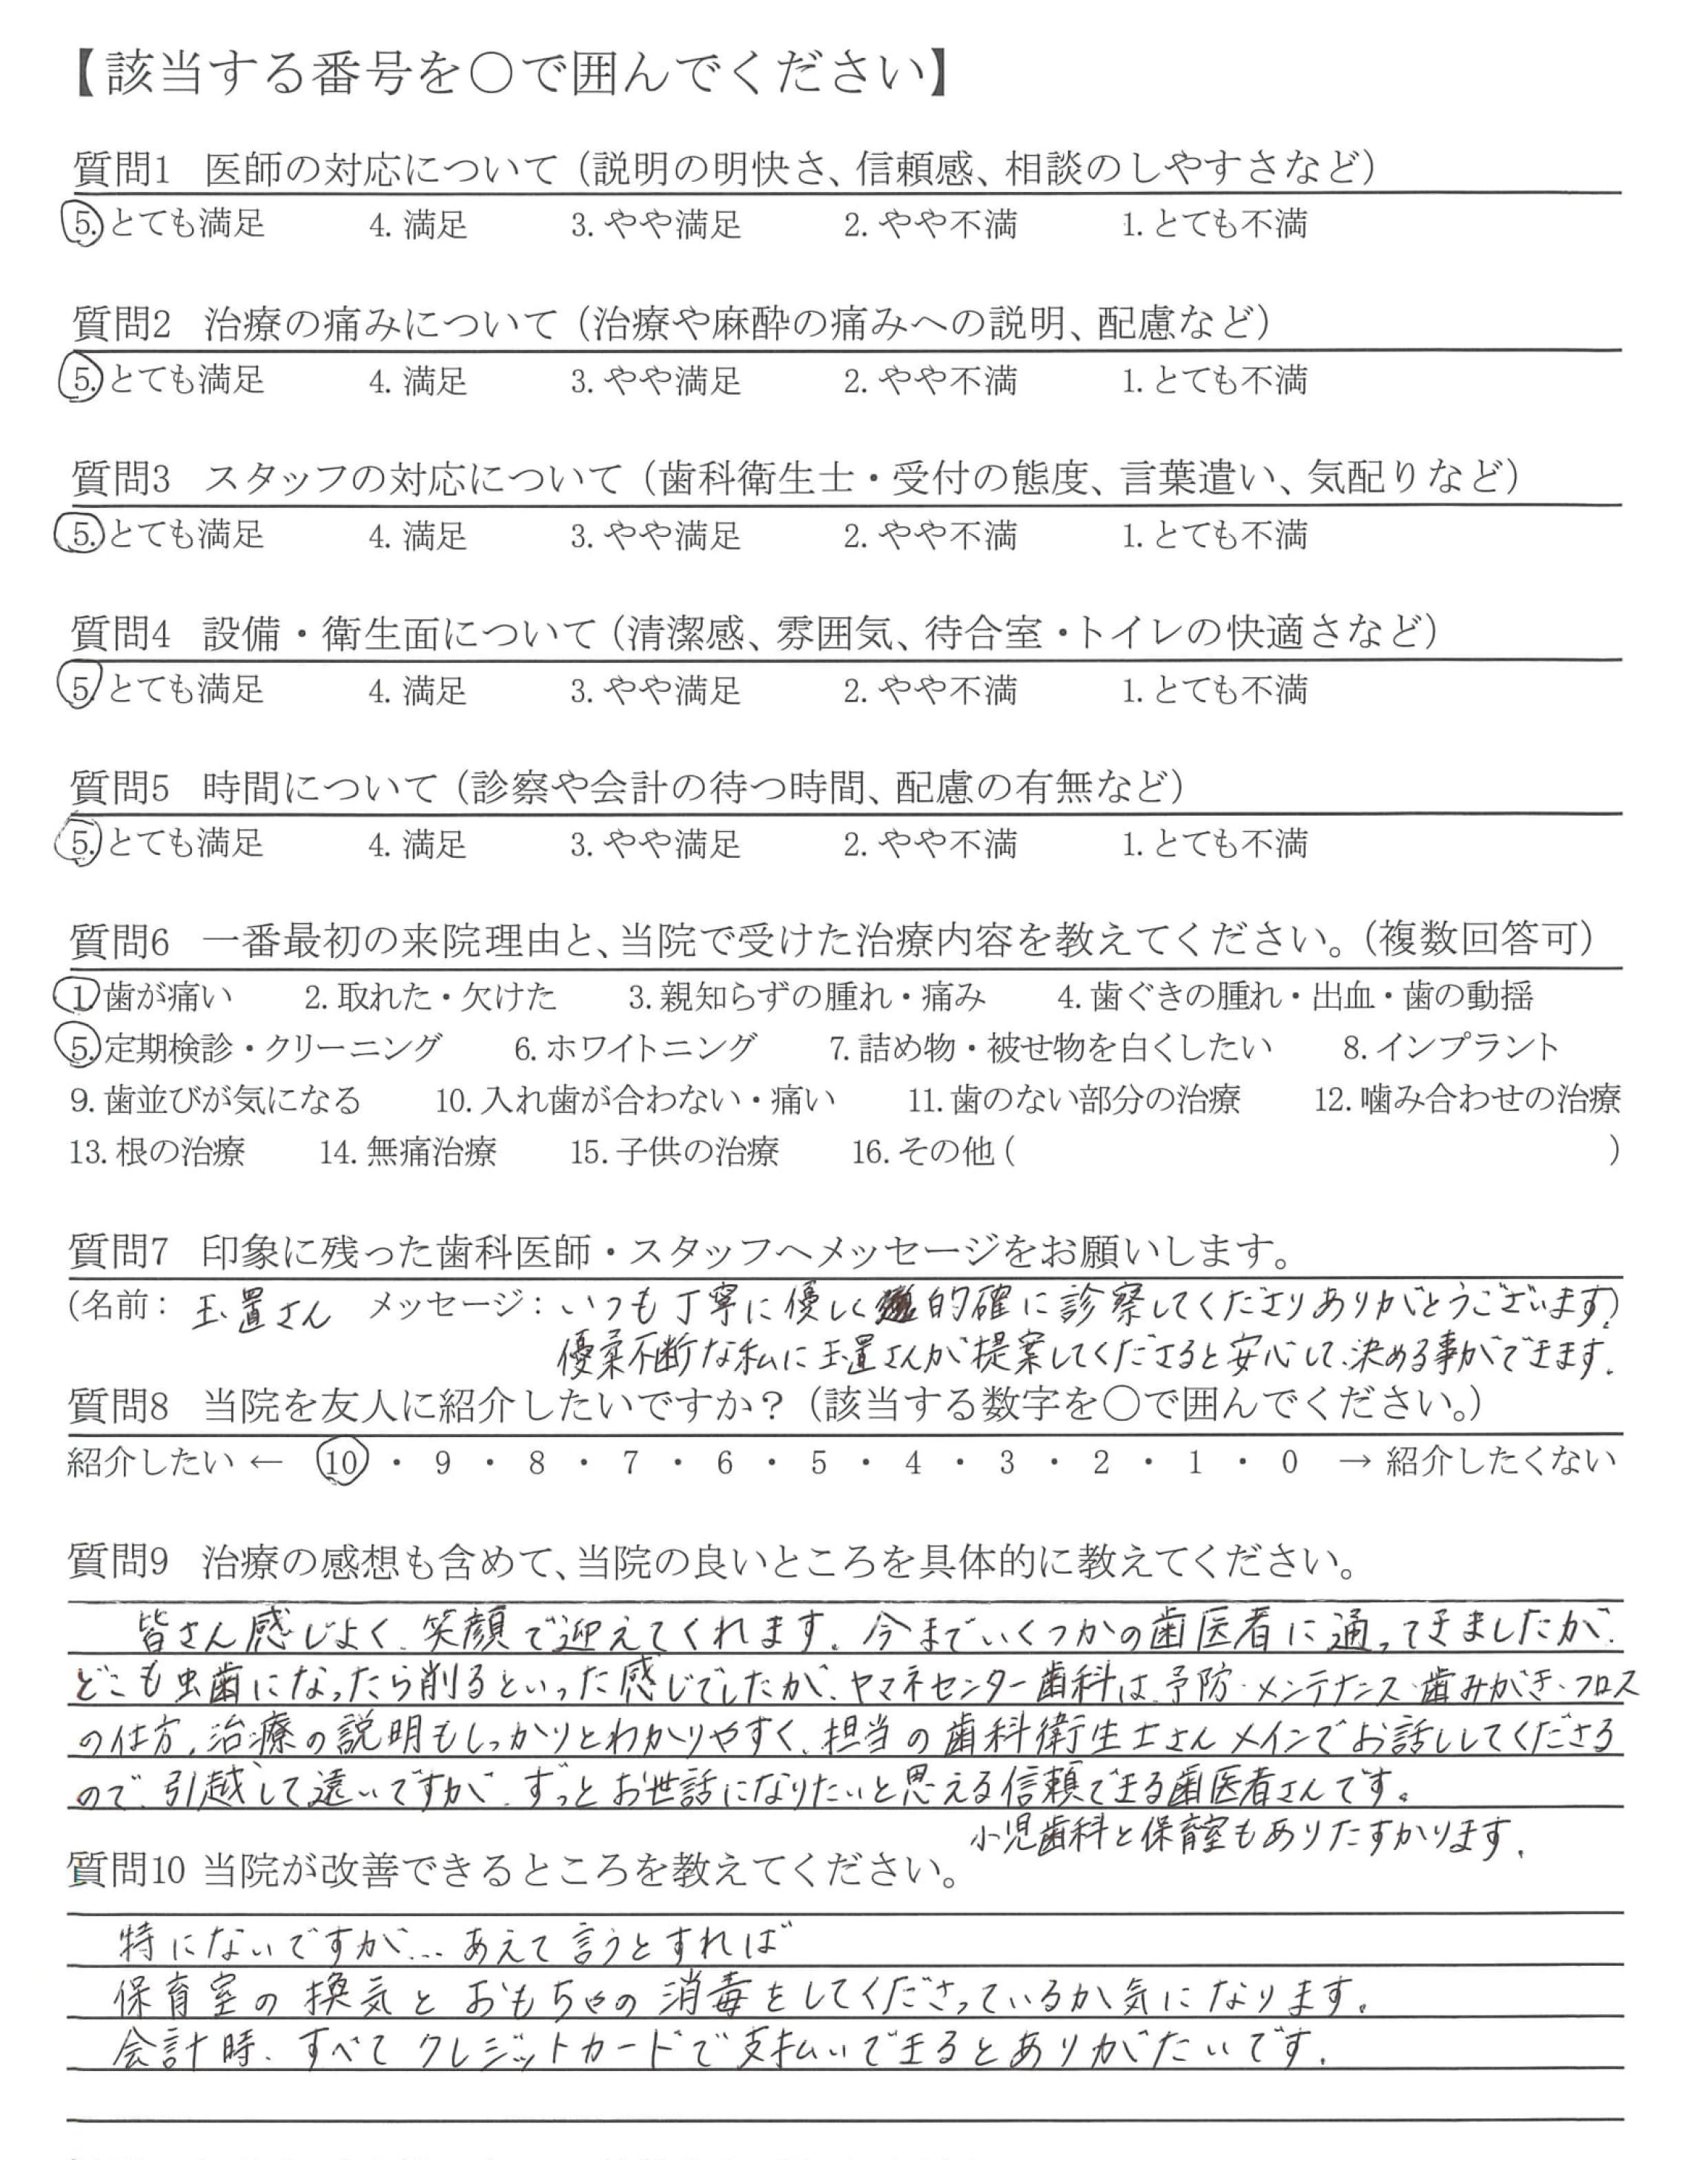 【該当する番号を○で囲んでください】
質問1 医師の対応について（説明の明快さ、信頼感、相談のしやすさなど）
5. とても満足 4. 満足 3. やや満足 2. やや不満 1. とても不満
質問2 治療の痛みについて（治療や麻酔の痛みへの説明、配慮など）
5. とても満足 4. 満足 3. やや満足 2. やや不満 1. とても不満
質問3 スタッフの対応について（歯科衛生士・受付の態度、言葉遣い、気配りなど）
5. とても満足 4. 満足 3. やや満足 2. やや不満 1. とても不満
質問4 設備・衛生面について（清潔感、雰囲気、待合室・トイレの快適さなど）
5. とても満足 4. 満足 3. やや満足 2. やや不満 1. とても不満
質問5 時間について（診察や会計の待つ時間、配慮の有無など）
5. とても満足 4. 満足 3. やや満足 2. やや不満 1. とても不満
質問6 一番最初の来院理由と、当院で受けた治療内容を教えてください。（複数回答可）
1. 歯が痛い 2. 取れた・欠けた 3. 親知らずの腫れ・痛み 4. 歯ぐきの腫れ・出血・歯の動揺
5. 定期検診・クリーニング 6. ホワイトニング 7. 詰め物・被せ物を白くしたい 8. インプラント
9. 歯並びが気になる 10. 入れ歯が合わない・痛い 11. 歯のない部分の治療 12. 噛み合わせの治療
13. 根の治療 14. 無痛治療 15. 子供の治療 16. その他 ( )
質問7 印象に残った歯科医師・スタッフへメッセージをお願いします。
（名前：玉置さん メッセージ：いつも丁寧に優しく的確に診察してくださりありがとうございます）
優柔不断な私に玉置さんが提案してくださると安心して、決める事ができます。
質問8 当院を友人に紹介したいですか？（該当する数字を○で囲んでください。）
紹介したい ← 10 ・ 9 ・ 8 ・ 7 ・ 6 ・ 5 ・ 4 ・ 3 ・ 2 ・ 1 ・ 0 → 紹介したくない
質問9 治療の感想も含めて、当院の良いところを具体的に教えてください。
皆さん感じよく、笑顔で迎えてくれます。今までいくつかの歯医者に通ってきましたが、
どこも虫歯になったら削るといった感じでしたが、ヤマネセンター歯科は、予防・メンテナンス・歯みがき、フロス
の仕方、治療の説明もしっかりとわかりやすく、担当の歯科衛生士さんメインでお話ししてくださる
ので、引越して遠いですが、ずっとお世話になりたいと思える信頼できる歯医者さんです。
小児歯科と保育室もありたすかります。
質問10 当院が改善できるところを教えてください。
特にないですが… あえて言うとすれば
保育室の換気とおもちゃの消毒をしてくださっているか気になります。
会計時、すべてクレジットカードで支払いできるとありがたいです。